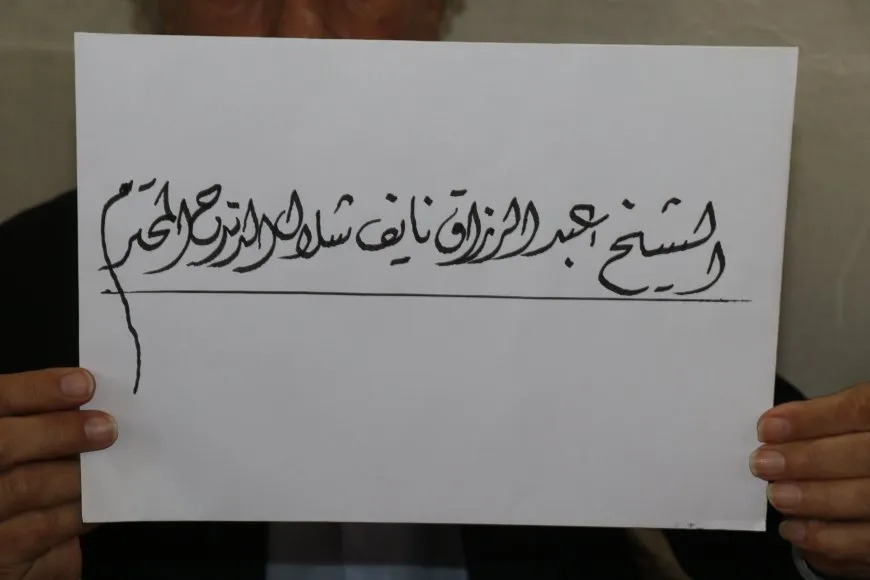 الشيخ عبد الرزاق نايف شلال المحترم